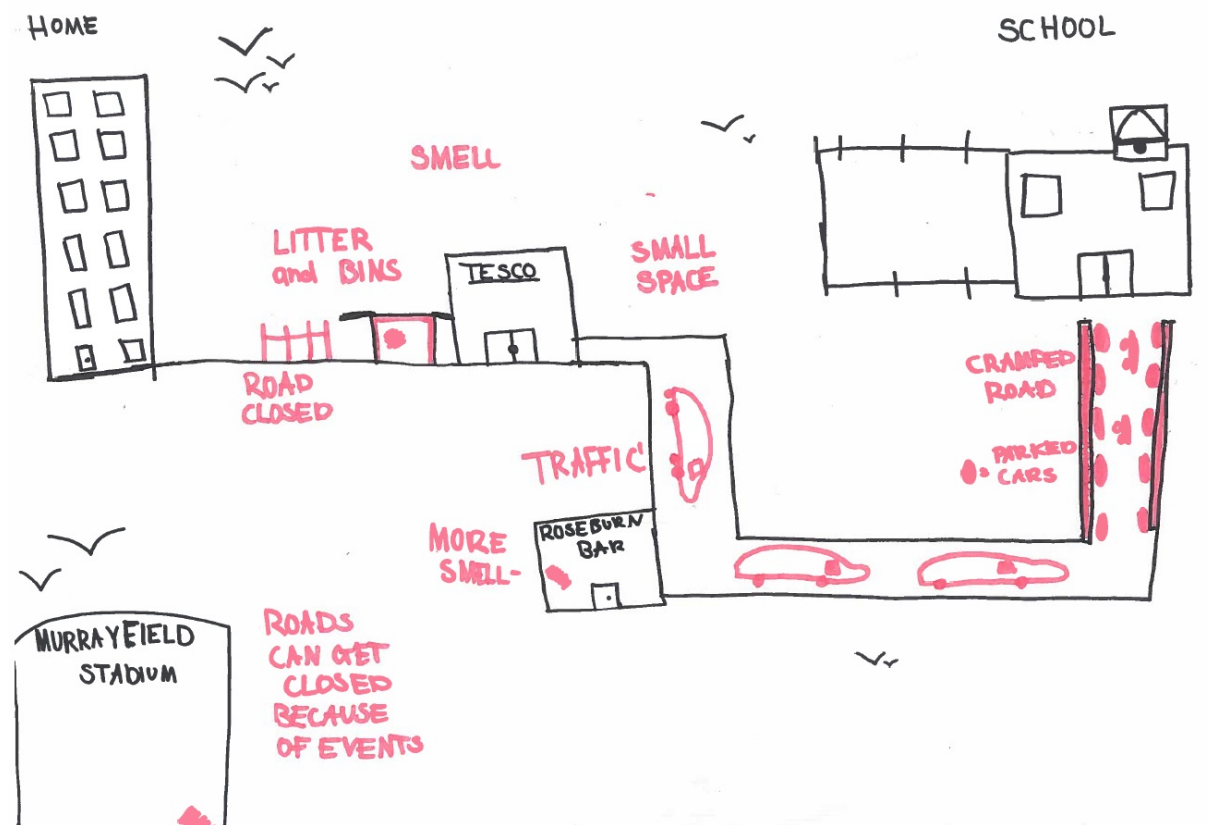 HOME
SCHOOL
SMELL
LITTER
and BINS
TESCO
SMALL
SPACE
ROAD
CLOSED
CRAMPED
ROAD
PARKED
CARS
TRAFFIC
ROSEBURN
BAR
MORE
SMELL-
MURRAYFIELD
STADIUM
ROADS
CAN GET
CLOSED
BECAUSE
OF EVENTS